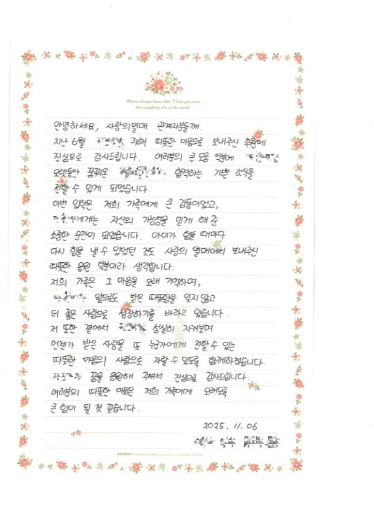 안녕하세요, 사랑의열매 관계자분들께.
지난 6월 따뜻한 마음으로 보내주신 후원에
진심으로 감사드립니다. 여러분의 큰 도움 덕분에
오랫동안 꿈꿔온 입학하는 기쁜 소식을
전할 수 있게 되었습니다.
이번 입학은 저희 가족에게 큰 감동이었고,
에게는 자신의 가능성을 믿게 해 준
소중한 순간이 되었습니다. 아이가 힘들 때마다
다시 힘을 낼 수 있었던 것도 사랑의 열매에서 보내주신
따뜻한 응원 덕분이라 생각합니다.
저희 가족은 그 마음을 오래 기억하며,
앞으로도 받은 따뜻함을 잊지 않고
더 좋은 사람으로 성장하기를 바라고 있습니다.
저 또한 곁에서 성실히 지켜보며
언젠가 받은 사랑을 또 누군가에게 전할 수 있는
따뜻한 마음의 사람으로 자랄 수 있도록 함께하겠습니다.
꿈을 응원해 주셔서 진심으로 감사드립니다.
여러분의 따뜻한 마음은 저희 가족에게 오래도록
큰 힘이 될 것 같습니다.
2025. 11. 06